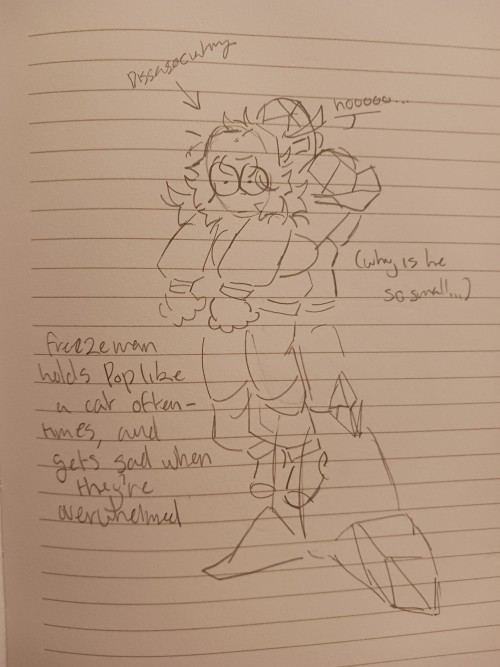 Dissasociating
hooooo...
(why is he
so small...)
freezeman
holds Pop like
a cat often-
times, and
gets sad when
they're
overwhelmed